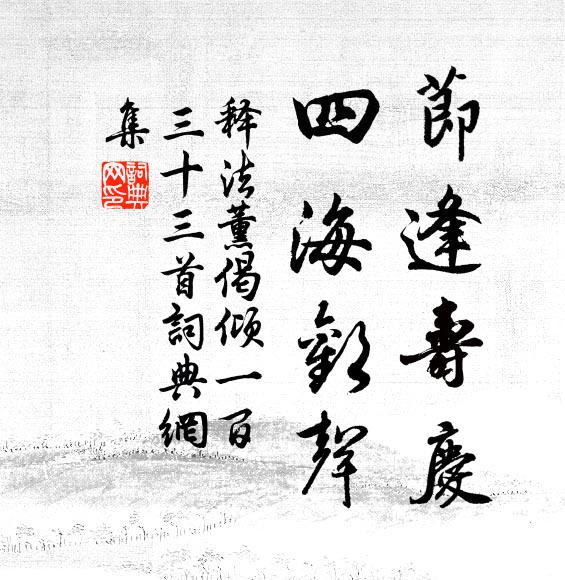 節逢壽慶
四海歡聲
释法薰偈傾一百
三十三首詞典網
集
詞典
网印